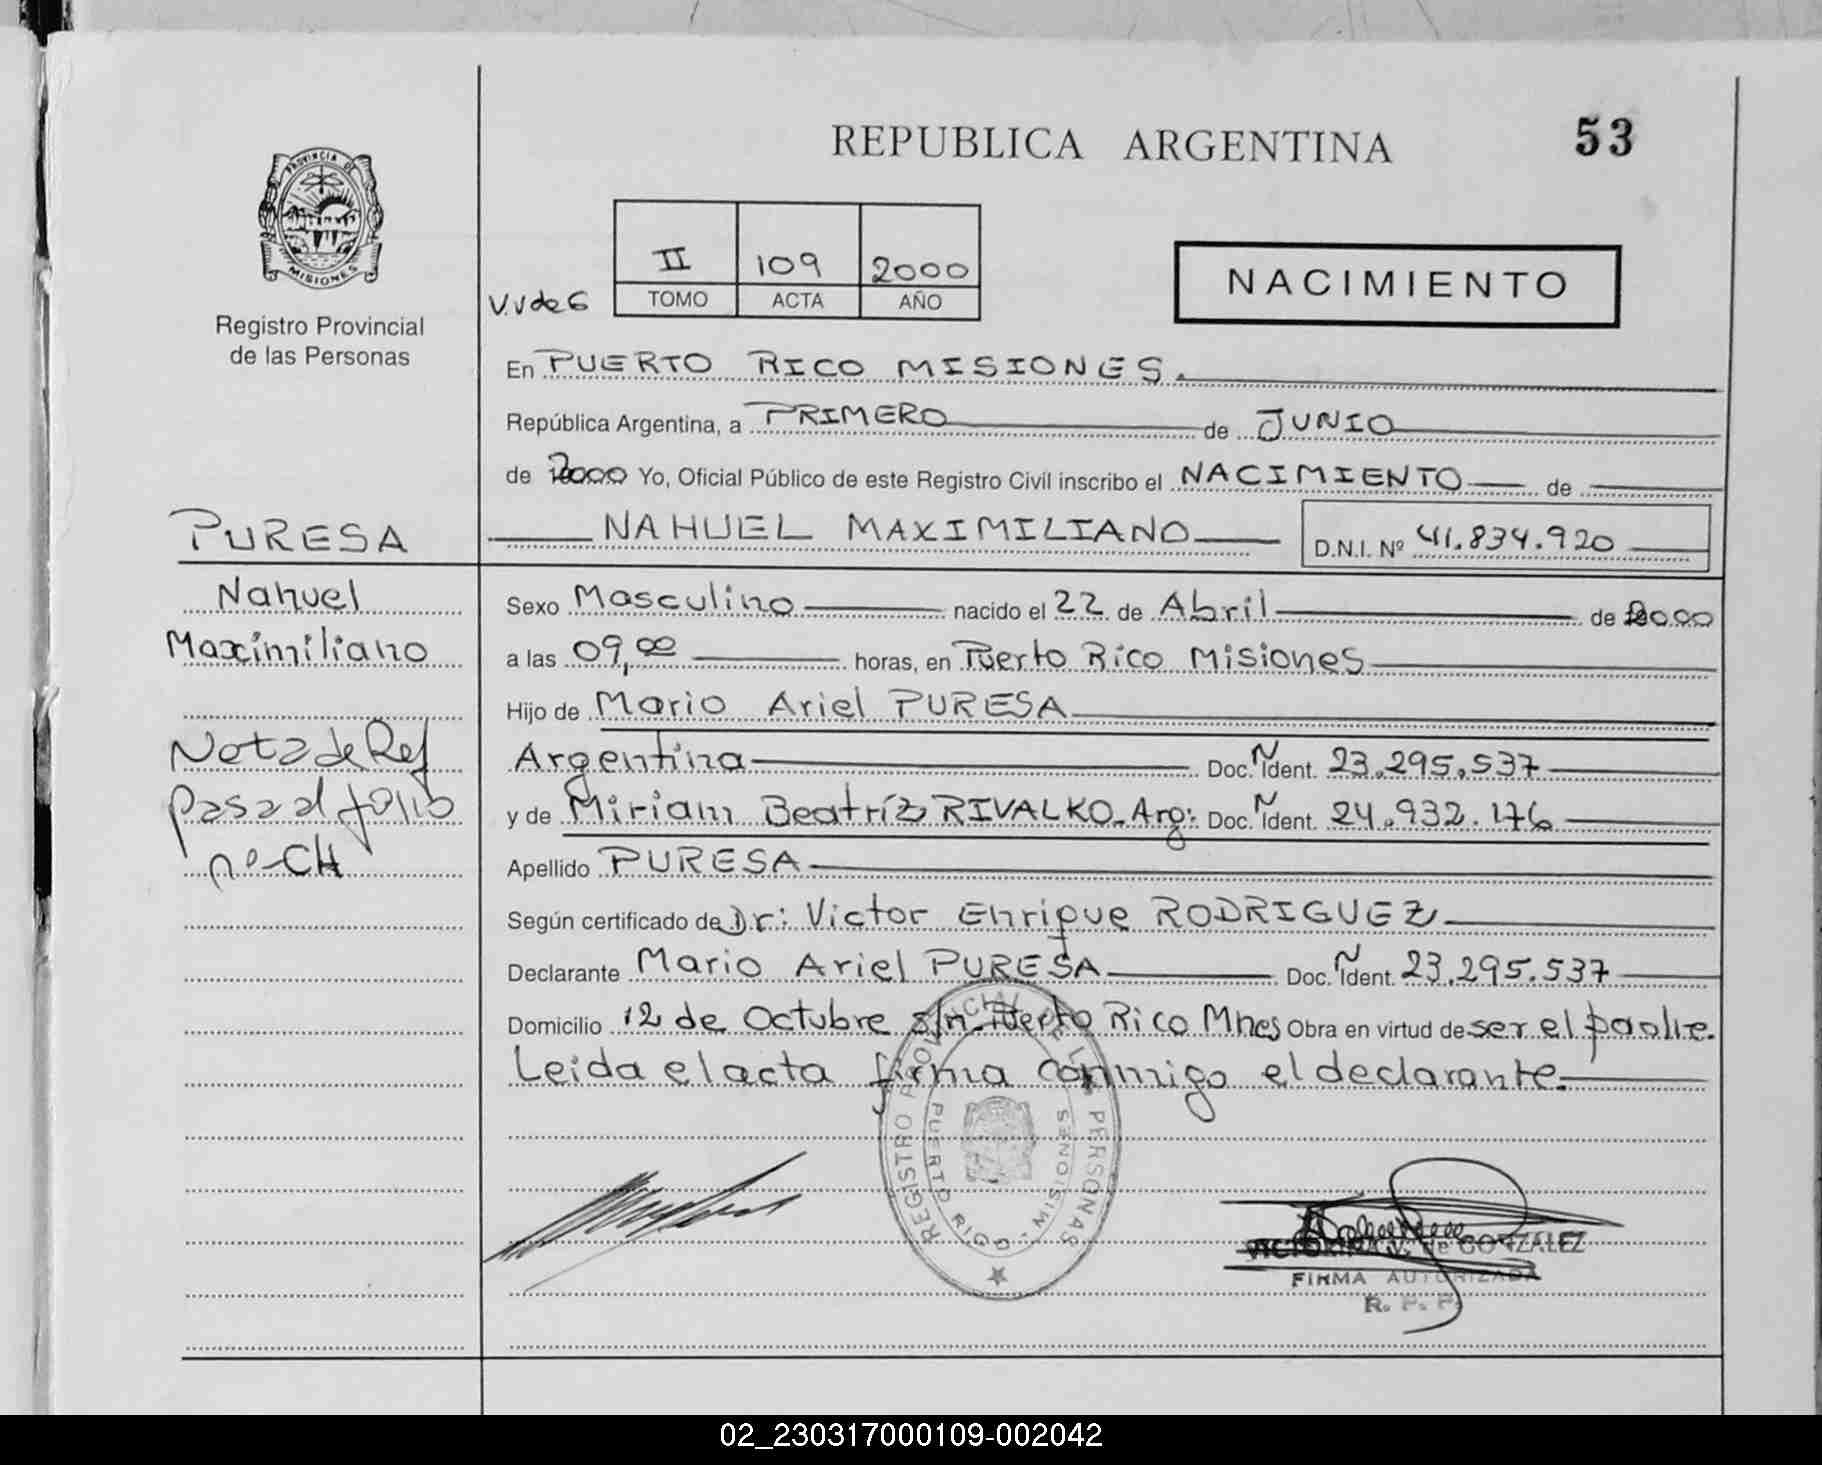 REPUBLICA ARGENTINA
53
PROVINCIA DE
MISIONES
Registro Provincial
de las Personas
V.V de G
II 109 2000
TOMO ACTA AÑO
NACIMIENTO
En PUERTO RICO MISIONES.
República Argentina, a PRIMERO de JUNIO
de 2000 Yo, Oficial Público de este Registro Civil inscribo el NACIMIENTO de
NAHUEL MAXIMILIANO D.N.I. Nº 41.834.920
PURESA
Nahuel
Maximiliano
Nota de Ref
pasa al folio
nº-CH
Sexo Masculino nacido el 22 de Abril de 2000
a las 09,00 horas, en Puerto Rico Misiones
Hijo de Mario Ariel PURESA
Argentina Doc. Ident. 23.295.537
y de Miriam Beatríz RIVALKO. Arg: Doc. Ident. 24.932.176
Apellido PURESA
Según certificado de Dr: Victor Enrique RODRIGUEZ
Declarante Mario Ariel PURESA Doc. Ident. 23.295.537
Domicilio 12 de Octubre s/n. Puerto Rico Mnes Obra en virtud de ser el padre.
Leida el acta firma conmigo el declarante.
REGISTRO PROVINCIAL DE LAS PERSONAS
PUERTO RICO - MISIONES
V. de GONZALEZ
FIRMA AUTORIZADA
R. P. P.
02_230317000109-002042